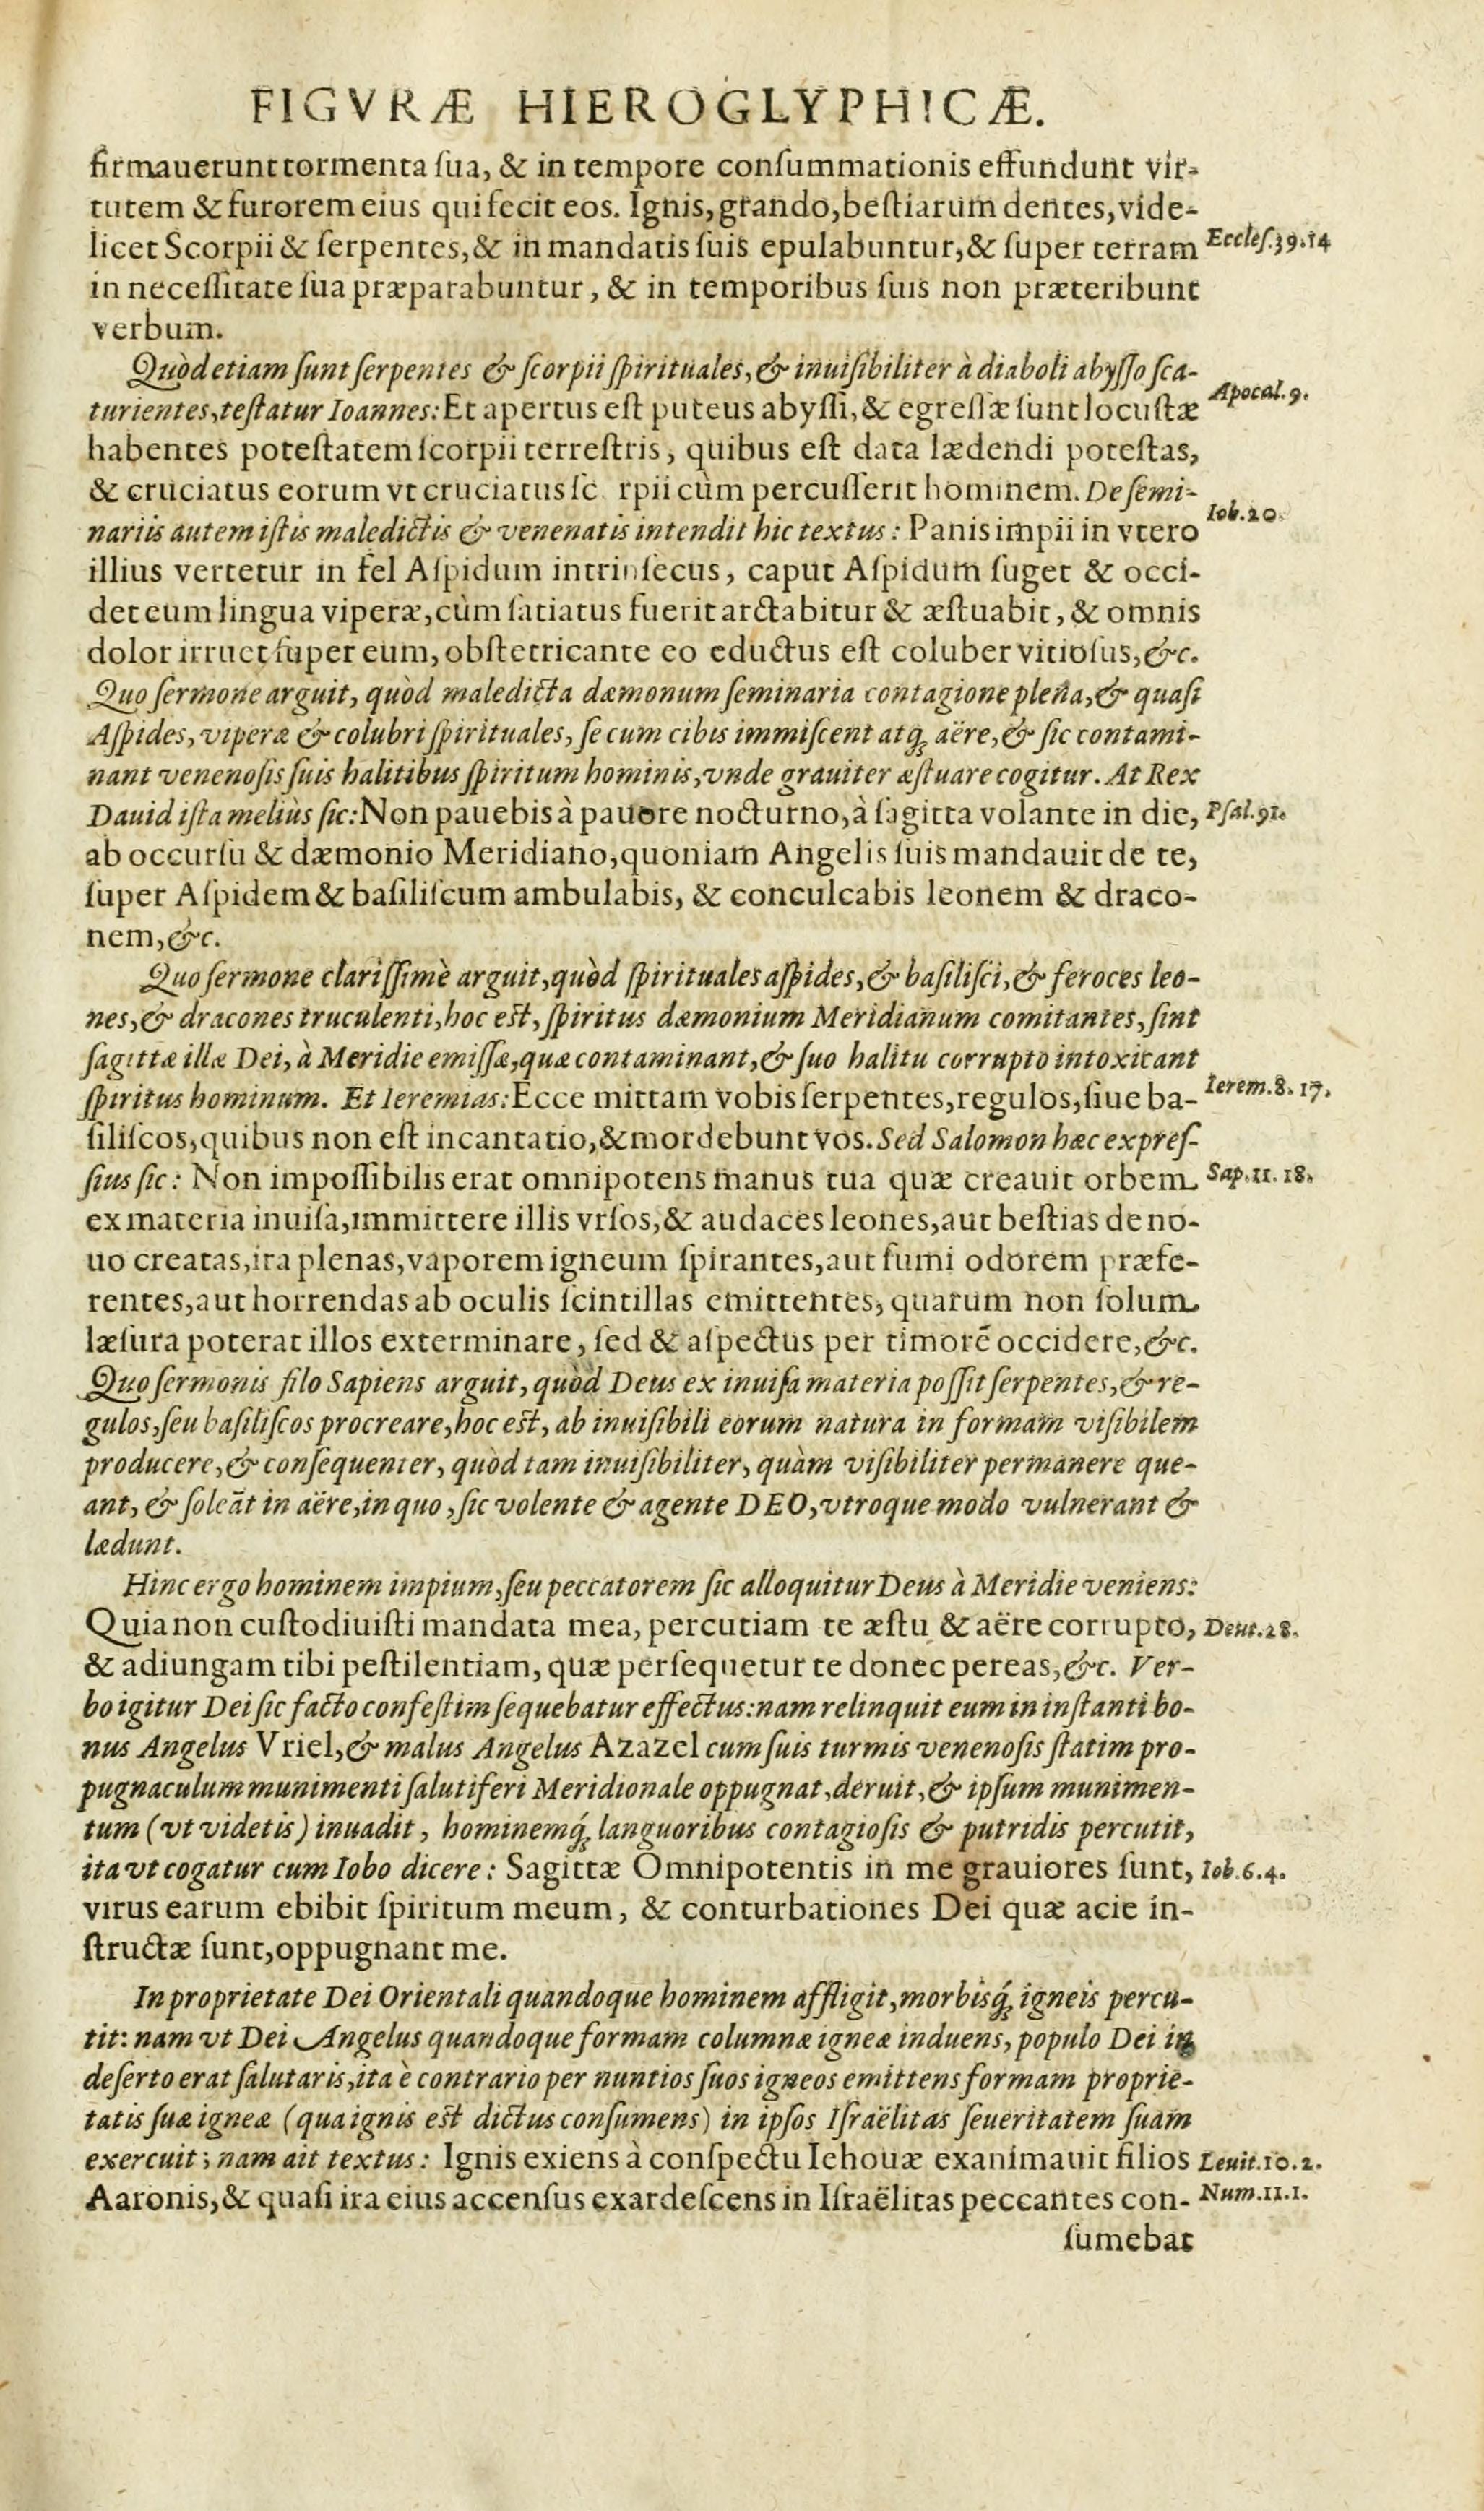 FIGVRÆ HIEROGLYPHICÆ.
firmauerunt tormenta ſua, & in tempore conſummationis effundunt vir-
tutem & furorem eius qui fecit eos. Ignis, grando, beſtiarum dentes, vide-
licet Scorpii & ſerpentes, & in mandatis ſuis epulabuntur, & ſuper terram
Eccleſ.39.14
in neceſſitate ſua præparabuntur, & in temporibus ſuis non præteribunt
verbum.
Quòd etiam ſunt ſerpentes & ſcorpii ſpirituales, & inuiſibiliter à diaboli abyſſo ſca-
turientes, teſtatur Ioannes: Et apertus eſt puteus abyſſi, & egreſſæ ſunt locuſtæ
Apocal.9.
habentes poteſtatem ſcorpii terreſtris, quibus eſt data lædendi poteſtas,
& cruciatus eorum vt cruciatus ſc rpii cùm percuſſerit hominem. De ſemi-
nariis autem iſtis maledictis & venenatis intendit hic textus: Panis impii in vtero
Iob.20.
illius vertetur in fel Aſpidum intrinſecus, caput Aſpidum ſuget & occi-
det eum lingua viperæ, cùm ſatiatus fuerit arctabitur & æſtuabit, & omnis
dolor irruet ſuper eum, obſtetricante eo eductus eſt coluber vitioſus, &c.
Quo ſermone arguit, quòd maledicta dæmonum ſeminaria contagione plena, & quaſi
Aſpides, viperæ & colubri ſpirituales, ſe cum cibis immiſcent atq; aëre, & ſic contami-
nant venenoſis ſuis halitibus ſpiritum hominis, vnde grauiter æſtuare cogitur. At Rex
Dauid iſta meliùs ſic: Non pauebis à pauore nocturno, à ſagitta volante in die,
Pſal.91.
ab occurſu & dæmonio Meridiano, quoniam Angelis ſuis mandauit de te,
ſuper Aſpidem & baſiliſcum ambulabis, & conculcabis leonem & draco-
nem, &c.
Quo ſermone clariſſimè arguit, quòd ſpirituales aſpides, & baſiliſci, & feroces leo-
nes, & dracones truculenti, hoc eſt, ſpiritus dæmonium Meridianum comitantes, ſint
ſagittæ illæ Dei, à Meridie emiſſæ, quæ contaminant, & ſuo halitu corrupto intoxicant
ſpiritus hominum. Et Ieremias: Ecce mittam vobis ſerpentes, regulos, ſiue ba-
Ierem.8.17.
ſiliſcos, quibus non eſt incantatio, & mordebunt vos. Sed Salomon hæc expreſ-
ſius ſic: Non impoſſibilis erat omnipotens manus tua quæ creauit orbem
Sap.11.18.
ex materia inuiſa, immittere illis vrſos, & audaces leones, aut beſtias de no-
uo creatas, ira plenas, vaporem igneum ſpirantes, aut fumi odorem præfe-
rentes, aut horrendas ab oculis ſcintillas emittentes, quarum non ſolum
læſura poterat illos exterminare, ſed & aſpectus per timorē occidere, &c.
Quo ſermonis filo Sapiens arguit, quòd Deus ex inuiſa materia poſſit ſerpentes, & re-
gulos, ſeu baſiliſcos procreare, hoc eſt, ab inuiſibili eorum natura in formam viſibilem
producere, & conſequenter, quòd tam inuiſibiliter, quàm viſibiliter permanere que-
ant, & ſoleāt in aëre, in quo, ſic volente & agente DEO, vtroque modo vulnerant &
lædunt.
Hinc ergo hominem impium, ſeu peccatorem ſic alloquitur Deus à Meridie veniens:
Quia non cuſtodiuiſti mandata mea, percutiam te æſtu & aëre corrupto,
Deut.28.
& adiungam tibi peſtilentiam, quæ perſequetur te donec pereas, &c. Ver-
bo igitur Dei ſic facto confeſtim ſequebatur effectus: nam relinquit eum in inſtanti bo-
nus Angelus Vriel, & malus Angelus Azazel cum ſuis turmis venenoſis ſtatim pro-
pugnaculum munimenti ſalutiferi Meridionale oppugnat, deruit, & ipſum munimen-
tum (vt videtis) inuadit, hominemq́; languoribus contagioſis & putridis percutit,
ita vt cogatur cum Iobo dicere: Sagittæ Omnipotentis in me grauiores ſunt,
Iob.6.4.
virus earum ebibit ſpiritum meum, & conturbationes Dei quæ acie in-
ſtructæ ſunt, oppugnant me.
In proprietate Dei Orientali quandoque hominem affligit, morbisq́; igneis percu-
tit: nam vt Dei Angelus quandoque formam columnæ igneæ induens, populo Dei in
deſerto erat ſalutaris, ita è contrario per nuntios ſuos igneos emittens formam proprie-
tatis ſuæ igneæ (qua ignis eſt dictus conſumens) in ipſos Iſraëlitas ſeueritatem ſuam
exercuit; nam ait textus: Ignis exiens à conſpectu Iehouæ exanimauit filios
Leuit.10.2.
Aaronis, & quaſi ira eius accenſus exardeſcens in Iſraëlitas peccantes con-
Num.11.1.
ſumebat